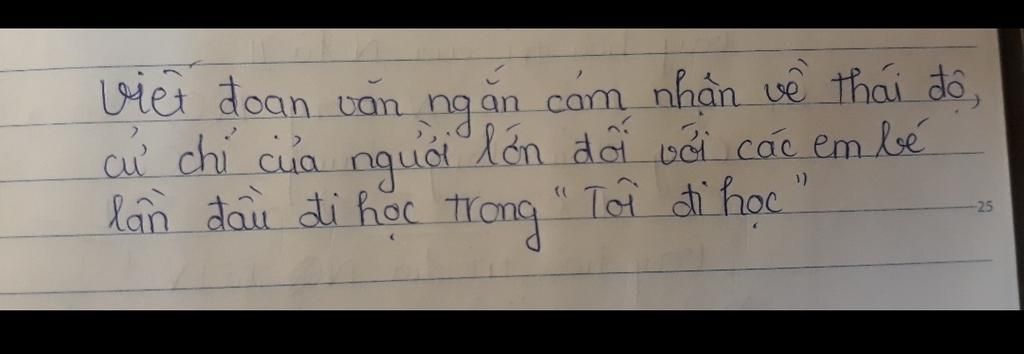 Viết đoạn văn ngắn cảm nhận về thái độ,
cử chỉ của người lớn đối với các em bé
lần đầu đi học trong "Tôi đi học"
25